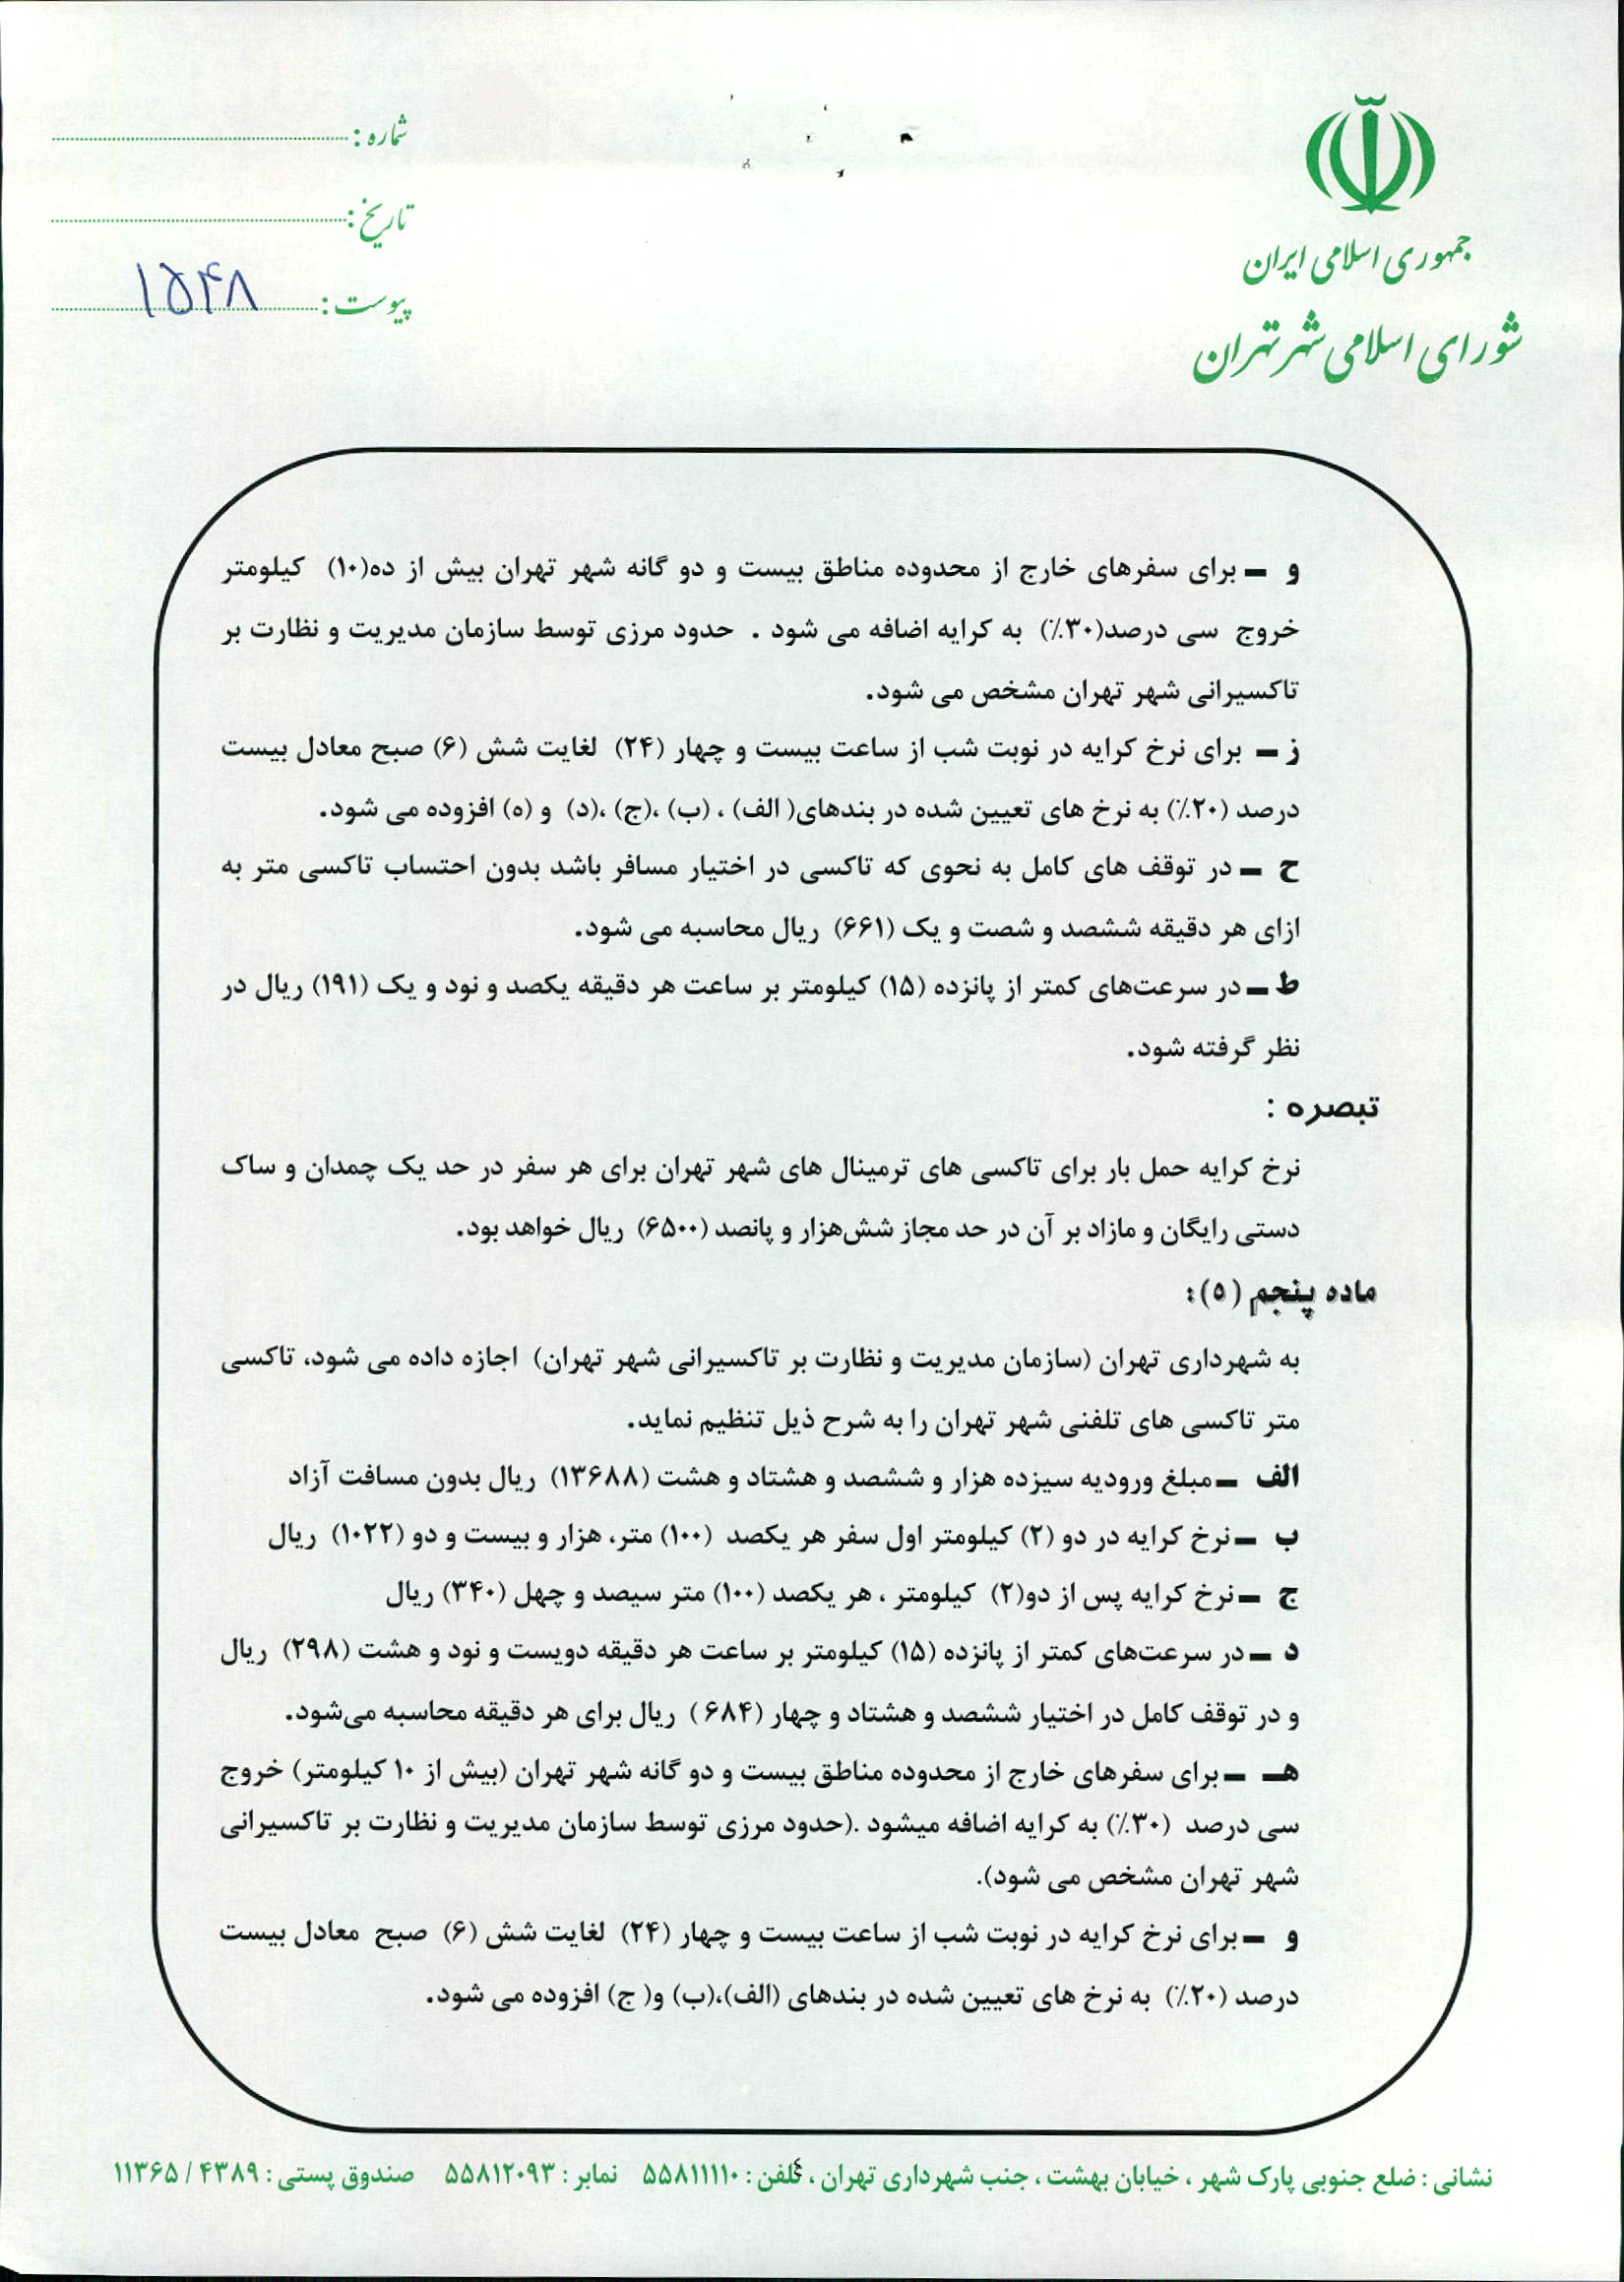 جمهوری اسلامی ایران
شورای اسلامی شهر تهران
شماره :
تاریخ :
پیوست : ۱۵۴۸
و – برای سفرهای خارج از محدوده مناطق بیست و دو گانه شهر تهران بیش از ده(۱۰) کیلومتر
خروج سی درصد(۳۰٪) به کرایه اضافه می شود . حدود مرزی توسط سازمان مدیریت و نظارت بر
تاکسیرانی شهر تهران مشخص می شود.
ز – برای نرخ کرایه در نوبت شب از ساعت بیست و چهار (۲۴) لغایت شش (۶) صبح معادل بیست
درصد (۲۰٪) به نرخ های تعیین شده در بندهای( الف) ، (ب) ،(ج) ،(د) و (ه) افزوده می شود.
ح – در توقف های کامل به نحوی که تاکسی در اختیار مسافر باشد بدون احتساب تاکسی متر به
ازای هر دقیقه ششصد و شصت و یک (۶۶۱) ریال محاسبه می شود.
ط – در سرعت‌های کمتر از پانزده (۱۵) کیلومتر بر ساعت هر دقیقه یکصد و نود و یک (۱۹۱) ریال در
نظر گرفته شود.
تبصره :
نرخ کرایه حمل بار برای تاکسی های ترمینال های شهر تهران برای هر سفر در حد یک چمدان و ساک
دستی رایگان و مازاد بر آن در حد مجاز شش‌هزار و پانصد (۶۵۰۰) ریال خواهد بود.
ماده پنجم (۵):
به شهرداری تهران (سازمان مدیریت و نظارت بر تاکسیرانی شهر تهران) اجازه داده می شود، تاکسی
متر تاکسی های تلفنی شهر تهران را به شرح ذیل تنظیم نماید.
الف – مبلغ ورودیه سیزده هزار و ششصد و هشتاد و هشت (۱۳۶۸۸) ریال بدون مسافت آزاد
ب – نرخ کرایه در دو (۲) کیلومتر اول سفر هر یکصد (۱۰۰) متر، هزار و بیست و دو (۱۰۲۲) ریال
ج – نرخ کرایه پس از دو(۲) کیلومتر ، هر یکصد (۱۰۰) متر سیصد و چهل (۳۴۰) ریال
د – در سرعت‌های کمتر از پانزده (۱۵) کیلومتر بر ساعت هر دقیقه دویست و نود و هشت (۲۹۸) ریال
و در توقف کامل در اختیار ششصد و هشتاد و چهار (۶۸۴ ) ریال برای هر دقیقه محاسبه می‌شود.
هـ – برای سفرهای خارج از محدوده مناطق بیست و دو گانه شهر تهران (بیش از ۱۰ کیلومتر) خروج
سی درصد (۳۰٪) به کرایه اضافه میشود .(حدود مرزی توسط سازمان مدیریت و نظارت بر تاکسیرانی
شهر تهران مشخص می شود).
و – برای نرخ کرایه در نوبت شب از ساعت بیست و چهار (۲۴) لغایت شش (۶) صبح معادل بیست
درصد (۲۰٪) به نرخ های تعیین شده در بندهای (الف)،(ب) و( ج) افزوده می شود.
نشانی : ضلع جنوبی پارک شهر ، خیابان بهشت ، جنب شهرداری تهران ، تلفن : ۵۵۸۱۱۱۱۰ نمابر : ۵۵۸۱۲۰۹۳ صندوق پستی : ۴۳۸۹ / ۱۱۳۶۵
٤